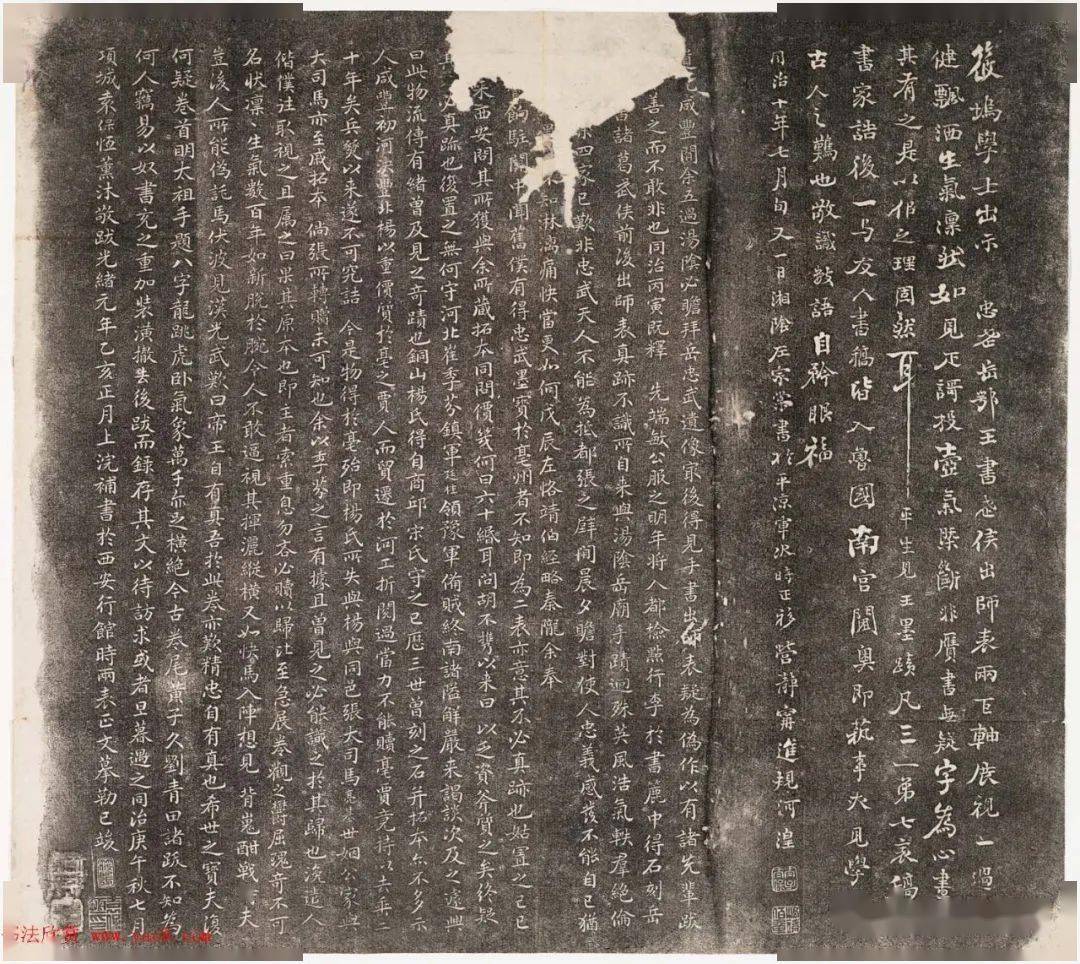 筱塢學士出示 忠武岳鄂王書武侯出師表兩巨軸展視一過
健飄洒生氣凛然如見正謂投壺氣槩斷非贋書無疑字為心畫
其有之是以似之理固然耳 平生見 王墨蹟凡三一弟七哀傷
書家誥後一与友人書稿皆入魯國南宫閫奥即蓺事大見學
古人之難也敬識數語自矜眼福
同治十年七月旬又一日湘陰左宗棠書於平涼軍次時正移營靜甯進規河湟
咸豐閒舍五過湯陰必瞻拜岳忠武遺像家後得見手書出師表疑為偽作以有諸先輩跋
善之而不敢非也同治丙寅既釋 先端敏公服之明年將入都檢點行李於書鹿中得石刻岳
書諸葛武侯前後出師表真跡不識所自来與湯陰岳廟手蹟迥殊英風浩氣軼羣絶倫
四家已歎非忠武天人不能為抵都張之壁間晨夕瞻對使人忠義感發不能自已猶
知林漓痛快當更如何戊辰左恪靖伯經略秦隴余奉
餉駐關中聞舊僕有得忠武墨寶於亳州者不知即為二表亦意其不必真跡也姑置之已已
来西安問其所獲與余所藏拓本同問價幾何曰六十緡耳問胡不携以来曰以乏資斧質之矣終疑
必真蹟也後置之無何守河北崔季芬鎮軍廷桂領豫軍備賊終南諸隘解嚴来謁談次及之遂興
曰此物流傳有緒曽及見之奇蹟也銅山楊氏得自商邱宋氏守之已歴三世曽刻之石并拓本亦不多示
人咸豐初河決豐北楊以重價質於亳之賈人而貿遷於河工折閱過當力不能贖亳賈竟持以去垂二
十年矣兵燹以来遂不可究詰今是物得於亳殆即楊氏所失與楊與同邑張大司馬 世姻公家世
大司馬亦至戚拓本倘張所轉囑未可知也余以季芬之言有據且曽見之必能識之於其歸也浚造人
偕僕往取視之且屬之曰果其原本也即王者索重息勿吝必贖以歸比至急展卷觀之鬱屈瑰奇不可
名狀凛凛生氣數百年如新脱於腕令人不敢逼視其揮灑縱横又如快馬入陣想見背嵬酣戰夫
豈後人所能偽託馬伏波見漢光武歎曰帝王自有真吾於此卷亦歎精忠自有真也希世之寶夫復
何疑卷首明太祖手題八字龍跳虎卧氣象萬千亦足横絶今古卷尾黄子久劉青田諸跋不知為
何人竊易以奴書充之重加装潢撤去後跋而録存其文以待訪求或者旦暮過之同治庚午秋七月
項城袁保恒薰沐敬跋光緒元年乙亥正月上浣補書於西安行館時兩表正文摹勒已竣
书法欣赏 www.yac8.com